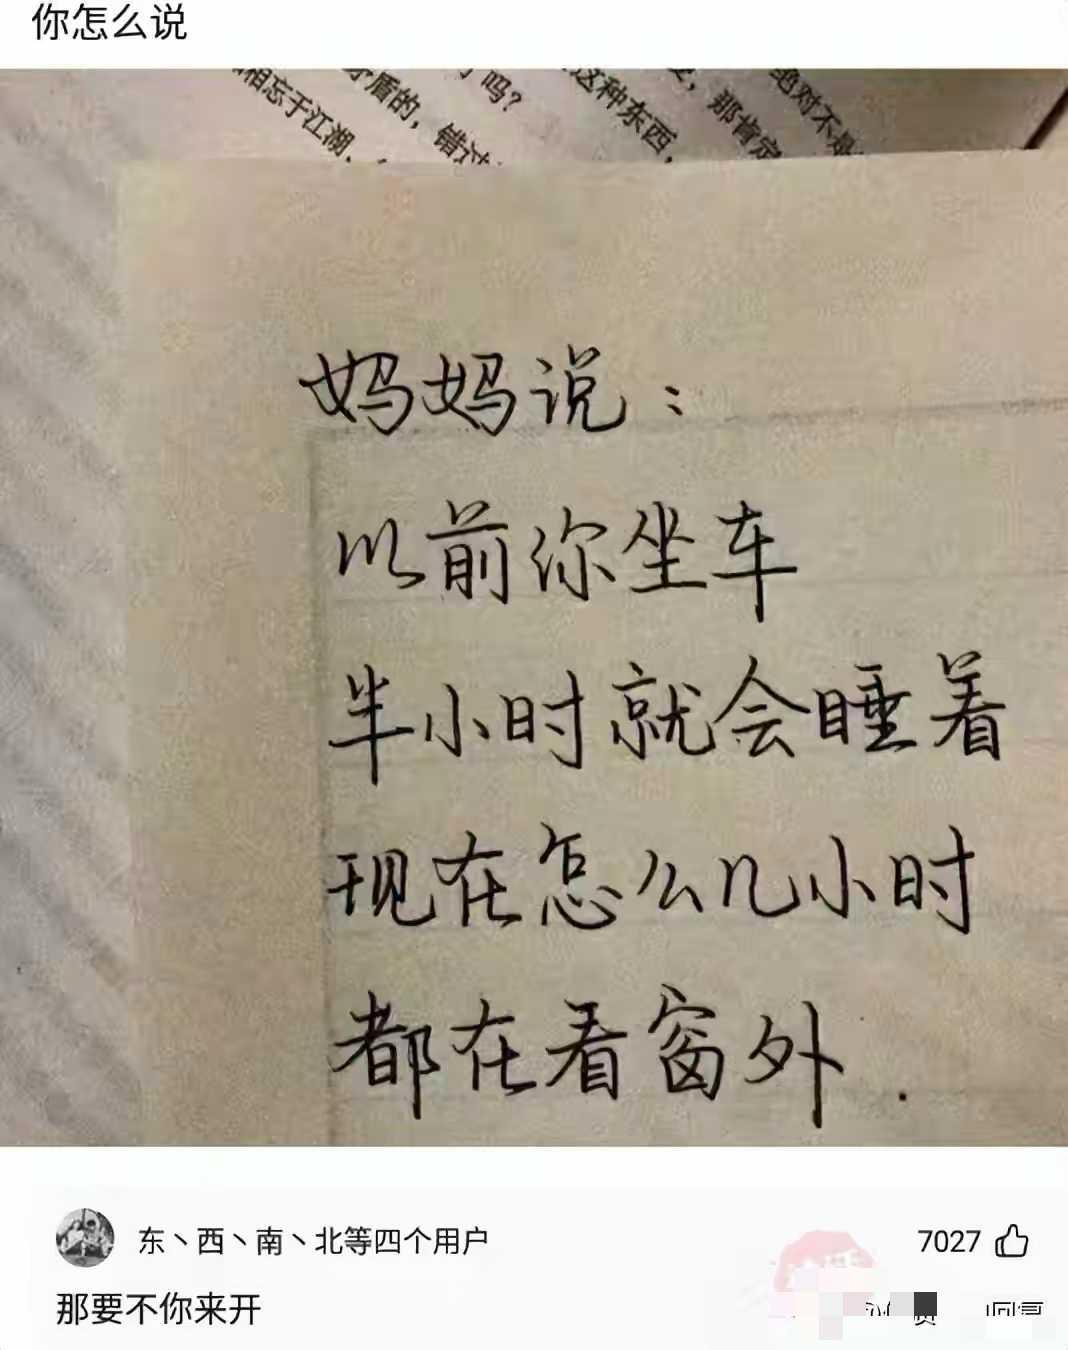 你怎么说
相忘于江湖、
矛盾的，错过
吗？
这种东西，
，那肯定
绝对不是
妈妈说：
以前你坐车
半小时就会睡着
现在怎么几小时
都在看窗外.
东丶西丶南丶北等四个用户
7027
那要不你来开
回复